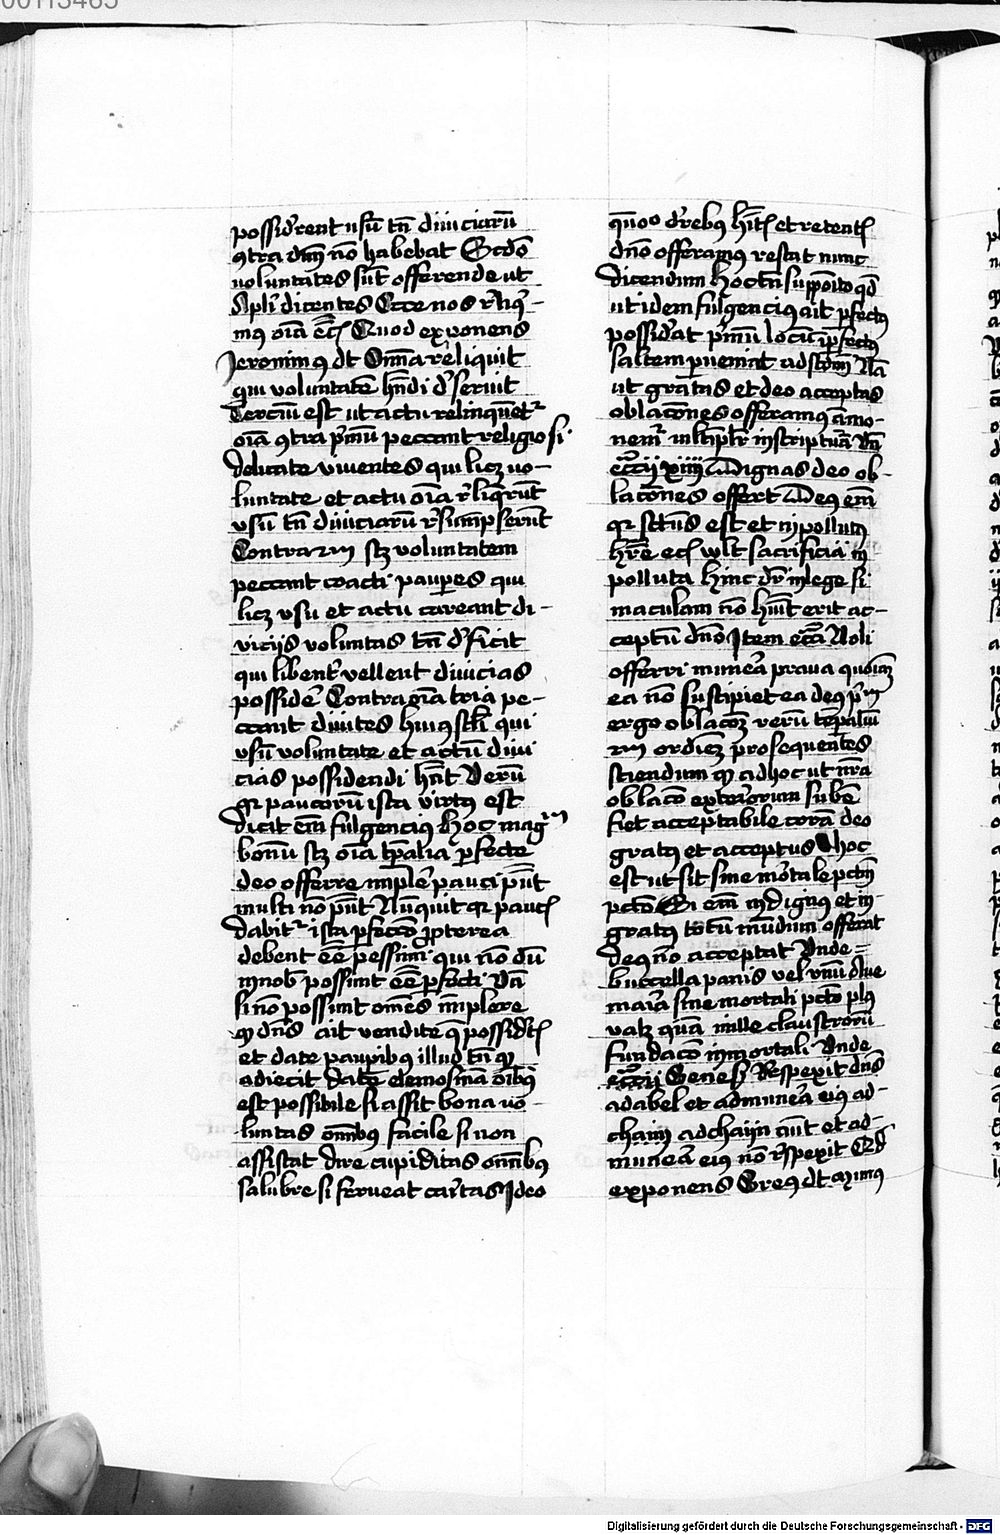 00113465
possid'rent usū tn̄ diuiciarū
ꝯtra dm̄ nō habebat Scdo
voluntates sūt offerende ut
Apl'i dicentes Ecce nos r'liq'-
mꝰ oīa etc̄ Quod exponens
Jeronimꝰ dt Omīa reliquit
qui voluntatē hn̄di d'seruit
Terciū est ut actu relinquet~
oīa ꝯtra p'mū peccant religiosi
delicate viuentes qui licz vo-
luntate et actu oīa r'liq'rūt
vsū tn̄ diuiciarū r'sūmpserūt
Contrariū scz voluntatem
peccant coacti paupes qui
licz vsu et actu careant di-
viciis voluntas tn̄ d'ficit
qui libent' vellent diuicias
possidē Contra oīa tria pe-
ccant diuites huiꝰ sc'li qui
vsū voluntate et actū diui
cias possidendi hn̄t Verū
qr paucorū ista virtꝰ est
dicit em̄ fulgenciꝰ Hoc mag'm
bonū scz oīa tp̄alia ꝑfecte
deo offerre implē pauci pn̄t
multi nō pn̄t Nūquit qr paucꝭ
dabit~ ista ꝑfectō ꝓpterea
debent ēe pessimi qui nō dū
in nob possunt ēe ꝑfecti Vn̄
si nō possunt om̄es īmplere
ꝙ dn̄s ait vendite q̄ possid'tꝭ
et date paupibꝰ illud tn̄ ꝙ
adiecit date elemosinā oībꝰ
est possibile si assit bona vo-
luntas omnibꝰ facile si non
assistat dire cupiditas omnibꝰ
salubre si ferueat caritas Ideo
qūo d' rebꝰ hītꝭ et retentꝭ
dn̄o offeramꝰ restat nunc
dicendum hoc tn̄ supposito qd
ut idem fulgenciꝰ ait ꝑfectꝰ
possideat p'mū locū īꝑfectꝰ
saltem ꝑueniat ad scd̄m Nā
ut gratas et deo acceptas
oblacōnes offeramꝰ āmo-
nem~ mltiplr in scriptura Vn̄
eccī xiiii Dignas deo ob-
lacōnes offert Deꝰ em̄
qr sctūs est et in pollutꝰ
hr̄e ecī wlt sacrificia in
polluta hinc dr̄ in lege si
maculam nō hūīt erit ac-
ceptū dn̄o Item eccā Noli
offerri munera praua quoniam
ea nō suscipiet ea deꝰ p'm
ergo oblacōz rerū tp̄aliū
ordiēz prosequentes
sciendum ꝙ ad hoc ut nr̄a
oblacō exteriorum subē
fiet acceptabile corā deo
gratꝰ et acceptus hoc
est ut sit sine mortale pctm̄
pctō Si em̄ indignus et in-
gratꝰ totū mūdum offerat
deꝰ nō acceptat Vnde
buccella panis vel vnū Aue
maria sine mortali pctō plꝰ
valz quā mille claustrorū
fundacō in mortali Vnde
Genes Respexit dn̄s
ad abel et ad munera eiꝰ ad
chaim ad chaijn aūt et ad-
munera eiꝰ nō r'spexit Qd
exponens Gregꝰ dt
Digitalisierung gefördert durch die Deutsche Forschungsgemeinschaft - DFG